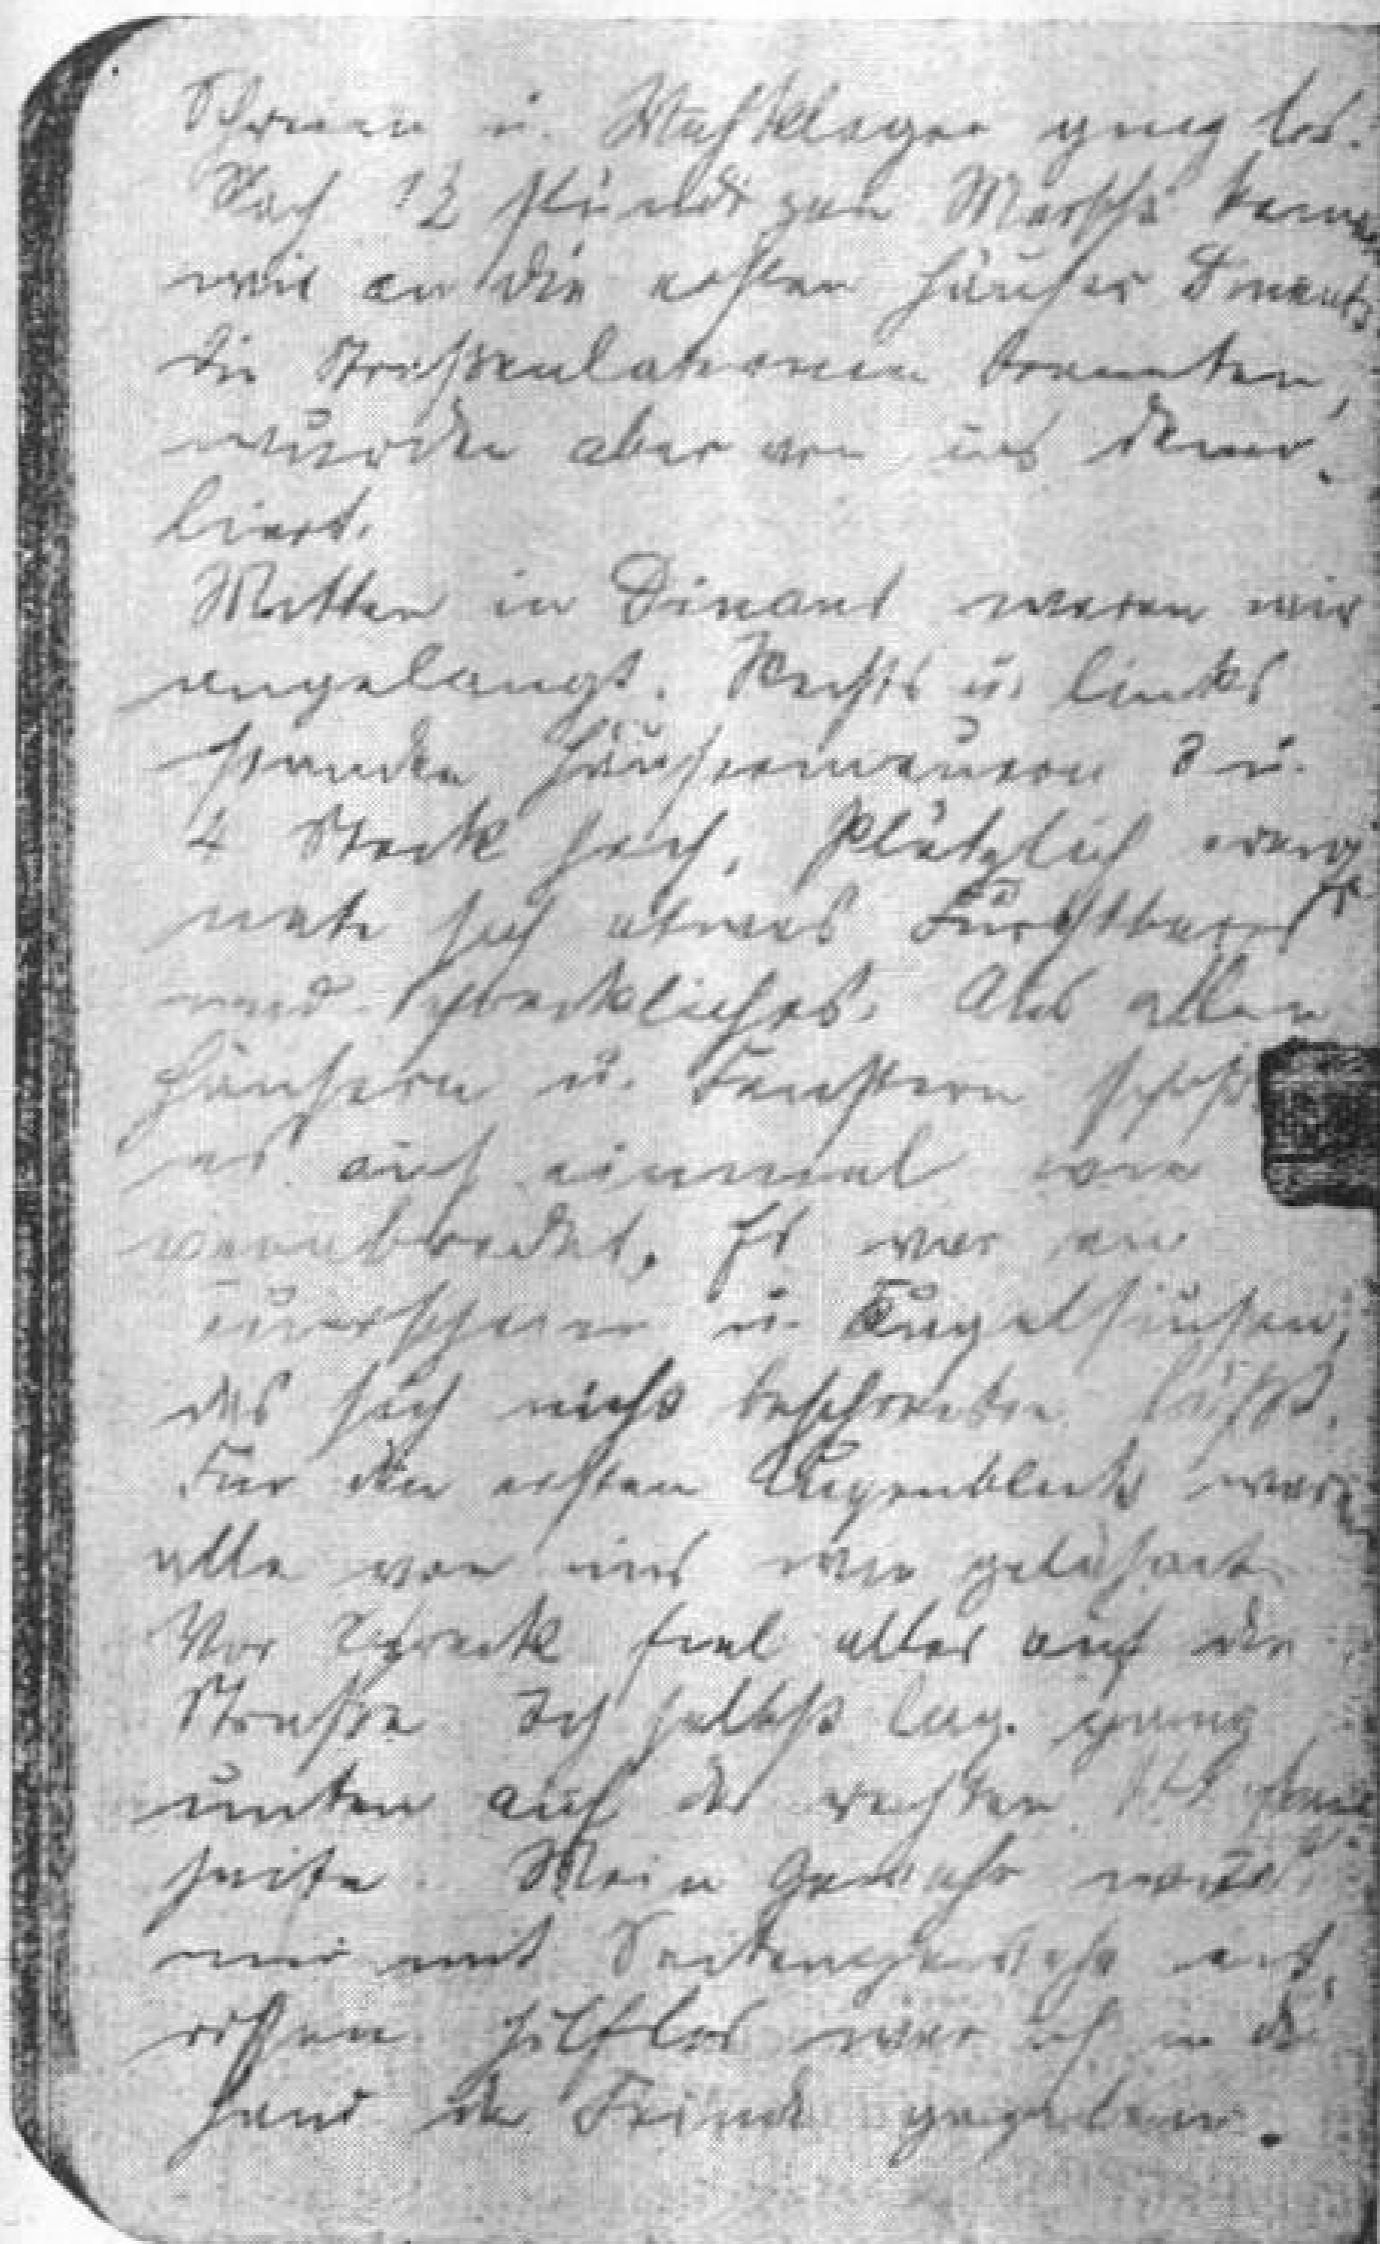 Schreien u. Wehklagen ging los.
Nach 1½ stündigen Marsche kamen
wir an die ersten Häuser Dinants.
Die Straßenlaternen brannten,
wurden aber von uns demo-
liert.
Mitten in Dinant waren wir
angelangt. Rechts u. links
standen Häusermauern 3 u.
4 Stock hoch. Plötzlich ereig
nete sich etwas Furchtbares
und schreckliches. Aus allen
Häusern u. Fenstern schoß
es auf einmal wie
verabredet. Es war ein
Feuerschein u. Kugelsausen,
das sich nicht beschreiben läßt.
Für den ersten Augenblick waren
alle von uns wie gelähmt.
Vor Schreck fiel alles auf die
Straße. Ich selbst lag ganz
unten auf der rechten
seite. Mein Gewehr wurde
mir mit Seitengewehr ent-
rissen. Hilflos war ich in die
Hand der Feinde gegeben.